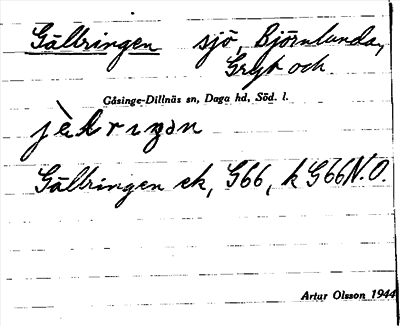 Gällringen sjö, Björnlunda,
Gryt och
Gåsinge-Dillnäs sn, Daga hd, Söd. l.
Gällringen ek, G66, k G66 N.O.
Artur Olsson 1944